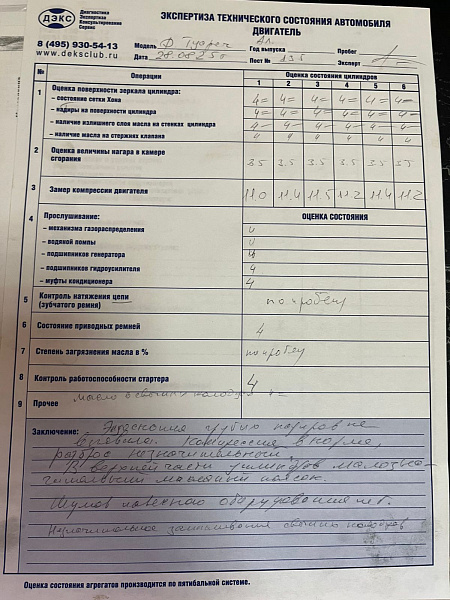 ДЭКС
Диагностика
Экспертиза
Консультирование
Сервис
8 (495) 930-54-13
www.deksclub.ru
ЭКСПЕРТИЗА ТЕХНИЧЕСКОГО СОСТОЯНИЯ АВТОМОБИЛЯ
ДВИГАТЕЛЬ
Модель Ф Туарег Год выпуска Пробег
Дата 28.08.25 Пост № Эксперт
№ Операции Оценка состояния цилиндров
1 2 3 4 5 6
1 Оценка поверхности зеркала цилиндра:
- состояние сетки Хона 4= 4= 4= 4= 4= 4=
- надиры на поверхности цилиндра 4= 4= 4= 4= 4= 4=
- наличие излишнего слоя масла на стенках цилиндра 4- 4- 4- 4- 4- 4-
- наличие масла на стержнях клапана 4 4 4 4 4 4
2 Оценка величины нагара в камере
сгорания 3.5 3.5 3.5 3.5 3.5 3.5
3 Замер компрессии двигателя 11.0 11.4 11.5 11.2 11.4 11.2
4 Прослушивание: ОЦЕНКА СОСТОЯНИЯ
- механизма газораспределения 4
- водяной помпы 4
- подшипников генератора 4
- подшипников гидроусилителя 4
- муфты кондиционера 4
5 Контроль натяжения цепи
(зубчатого ремня) по пробегу
6 Состояние приводных ремней 4
7 Степень загрязнения масла в % по пробегу
8 Контроль работоспособности стартера 4
9 Прочее масло в свечных колодцах
Заключение: Эндоскопия грубых надиров не
выявила. Компрессия в норме,
разброс незначительный.
В верхней части цилиндров малозна-
чительный масляный поясок.
Шумов навесного оборудования нет.
запотевания свечных колодцев
Оценка состояния агрегатов производится по пятибальной системе.